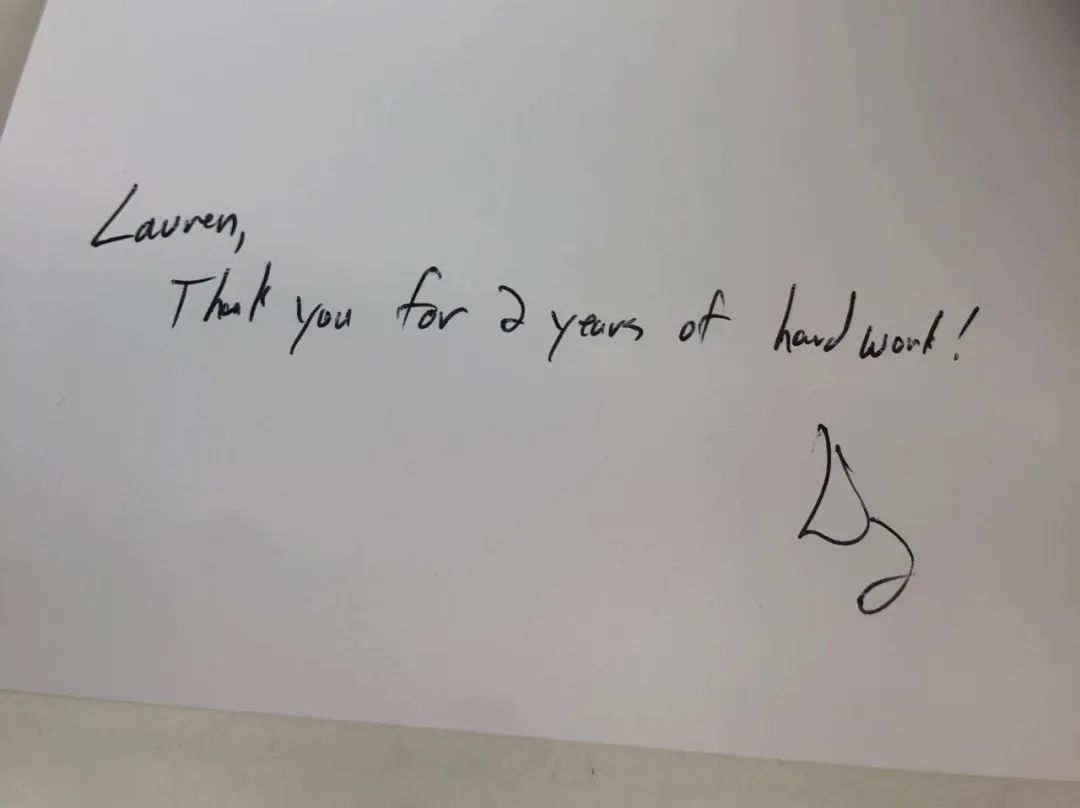 Lauren,
Thank you for 2 years of hard work!